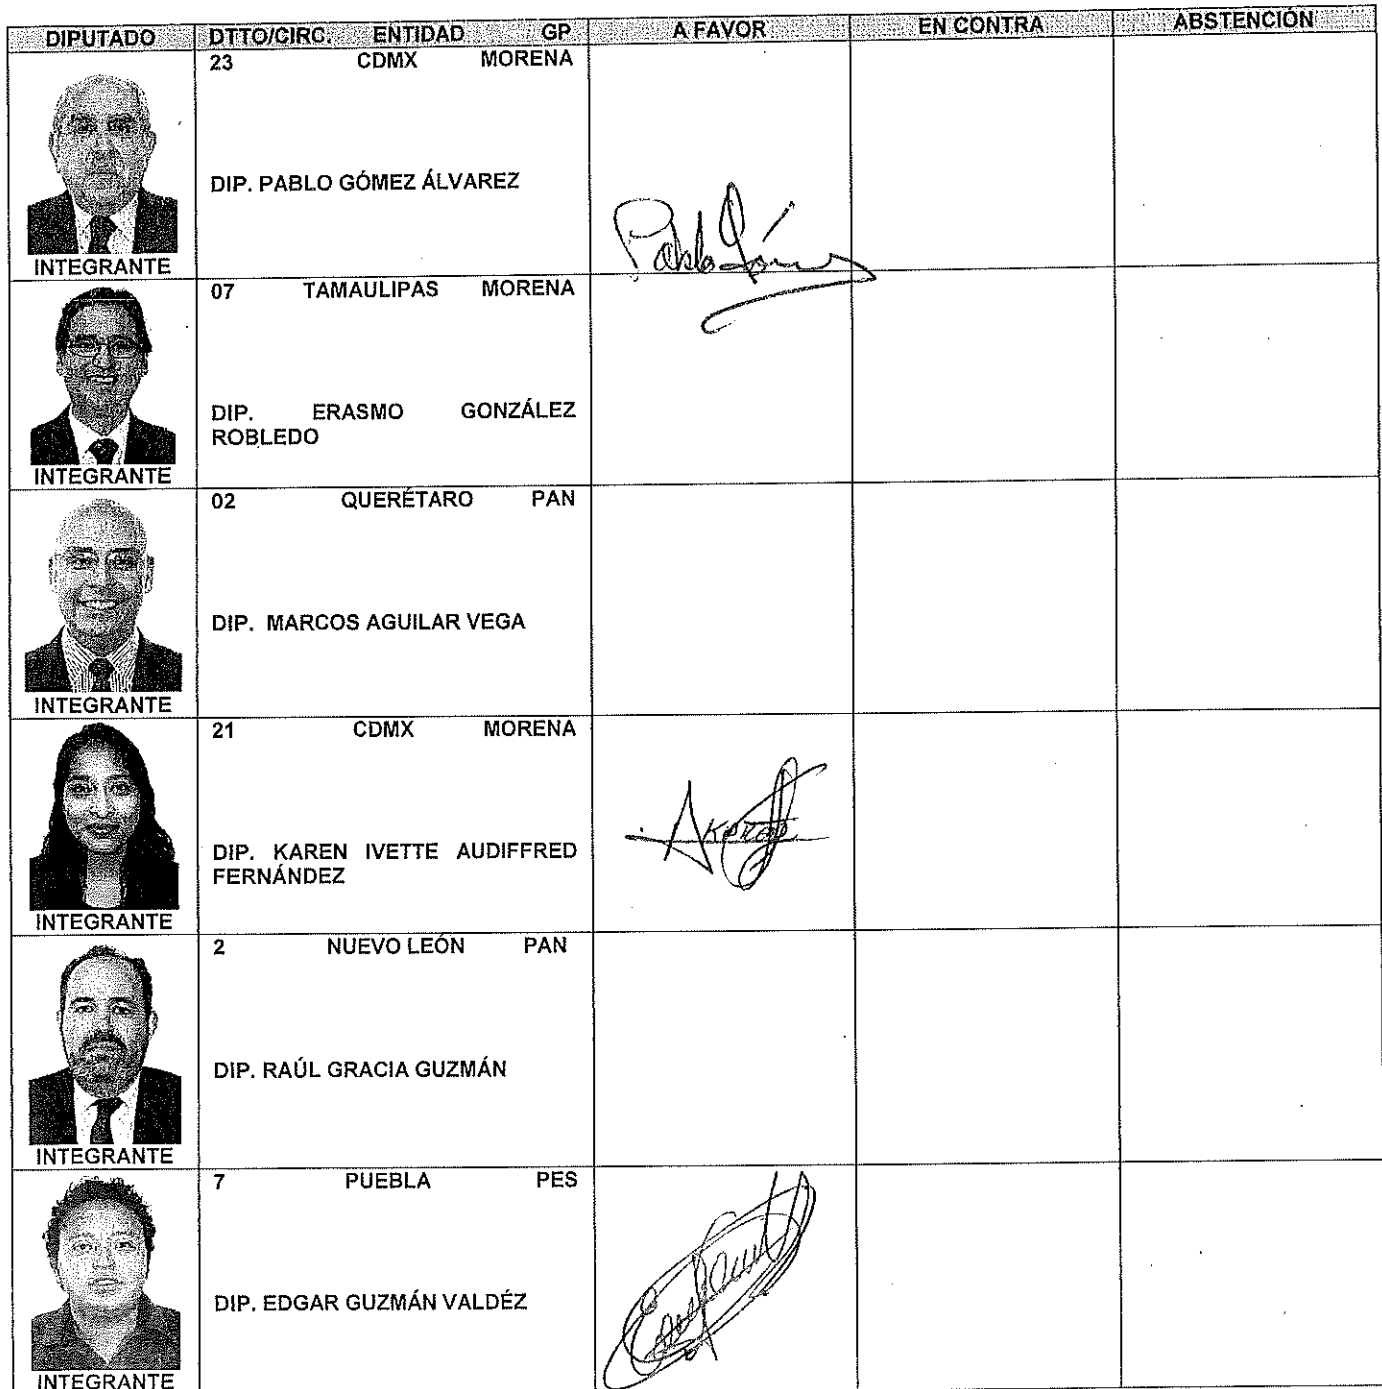 DIPUTADO DTTO/CIRC. ENTIDAD GP A FAVOR EN CONTRA ABSTENCIÓN
23 CDMX MORENA
DIP. PABLO GÓMEZ ÁLVAREZ
Pablo Gómez
INTEGRANTE
07 TAMAULIPAS MORENA
DIP. ERASMO GONZÁLEZ
ROBLEDO
INTEGRANTE
02 QUERÉTARO PAN
DIP. MARCOS AGUILAR VEGA
INTEGRANTE
21 CDMX MORENA
DIP. KAREN IVETTE AUDIFFRED
FERNÁNDEZ
INTEGRANTE
2 NUEVO LEÓN PAN
DIP. RAÚL GRACIA GUZMÁN
INTEGRANTE
7 PUEBLA PES
DIP. EDGAR GUZMÁN VALDÉZ
INTEGRANTE